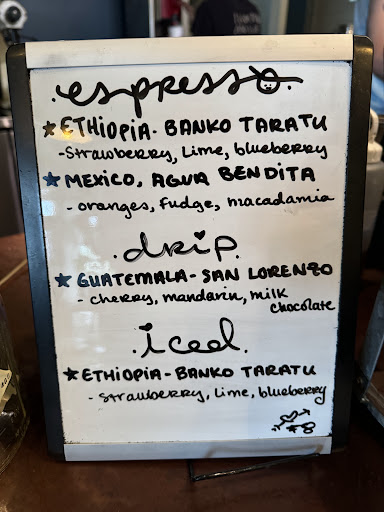 espresso
★ ETHIOPIA - BANKO TARATU
- Strawberry, Lime, blueberry
★ MEXICO, AGUA BENDITA
- oranges, fudge, macadamia
.drip.
★ GUATEMALA - SAN LORENZO
- cherry, mandarin, milk
chocolate
.iced.
★ ETHIOPIA - BANKO TARATU
- strawberry, lime, blueberry